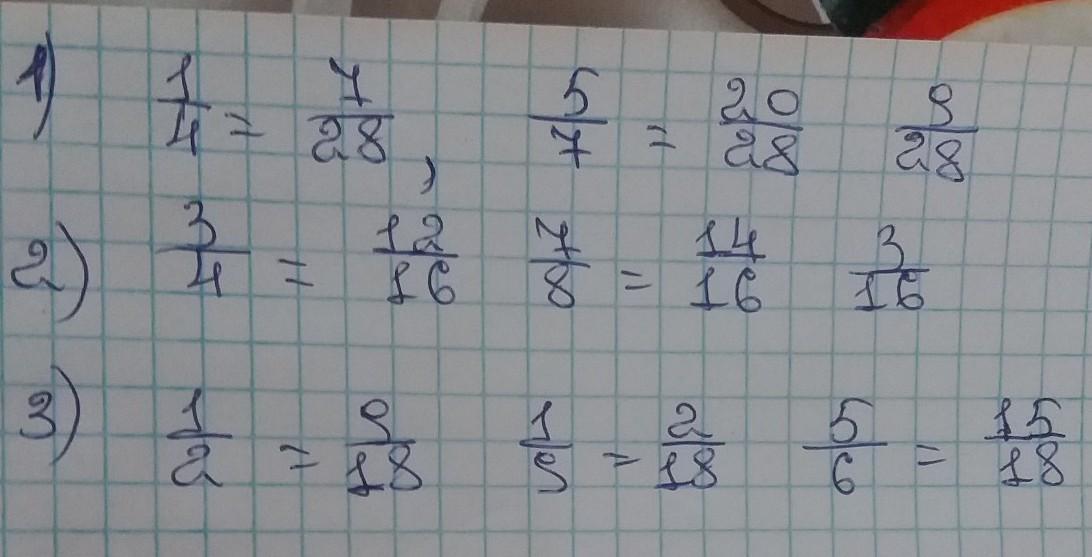 1) 1/4 = 7/28, 5/7 = 20/28 9/28
2) 3/4 = 12/16 7/8 = 14/16 3/16
3) 1/2 = 9/18 1/9 = 2/18 5/6 = 15/18